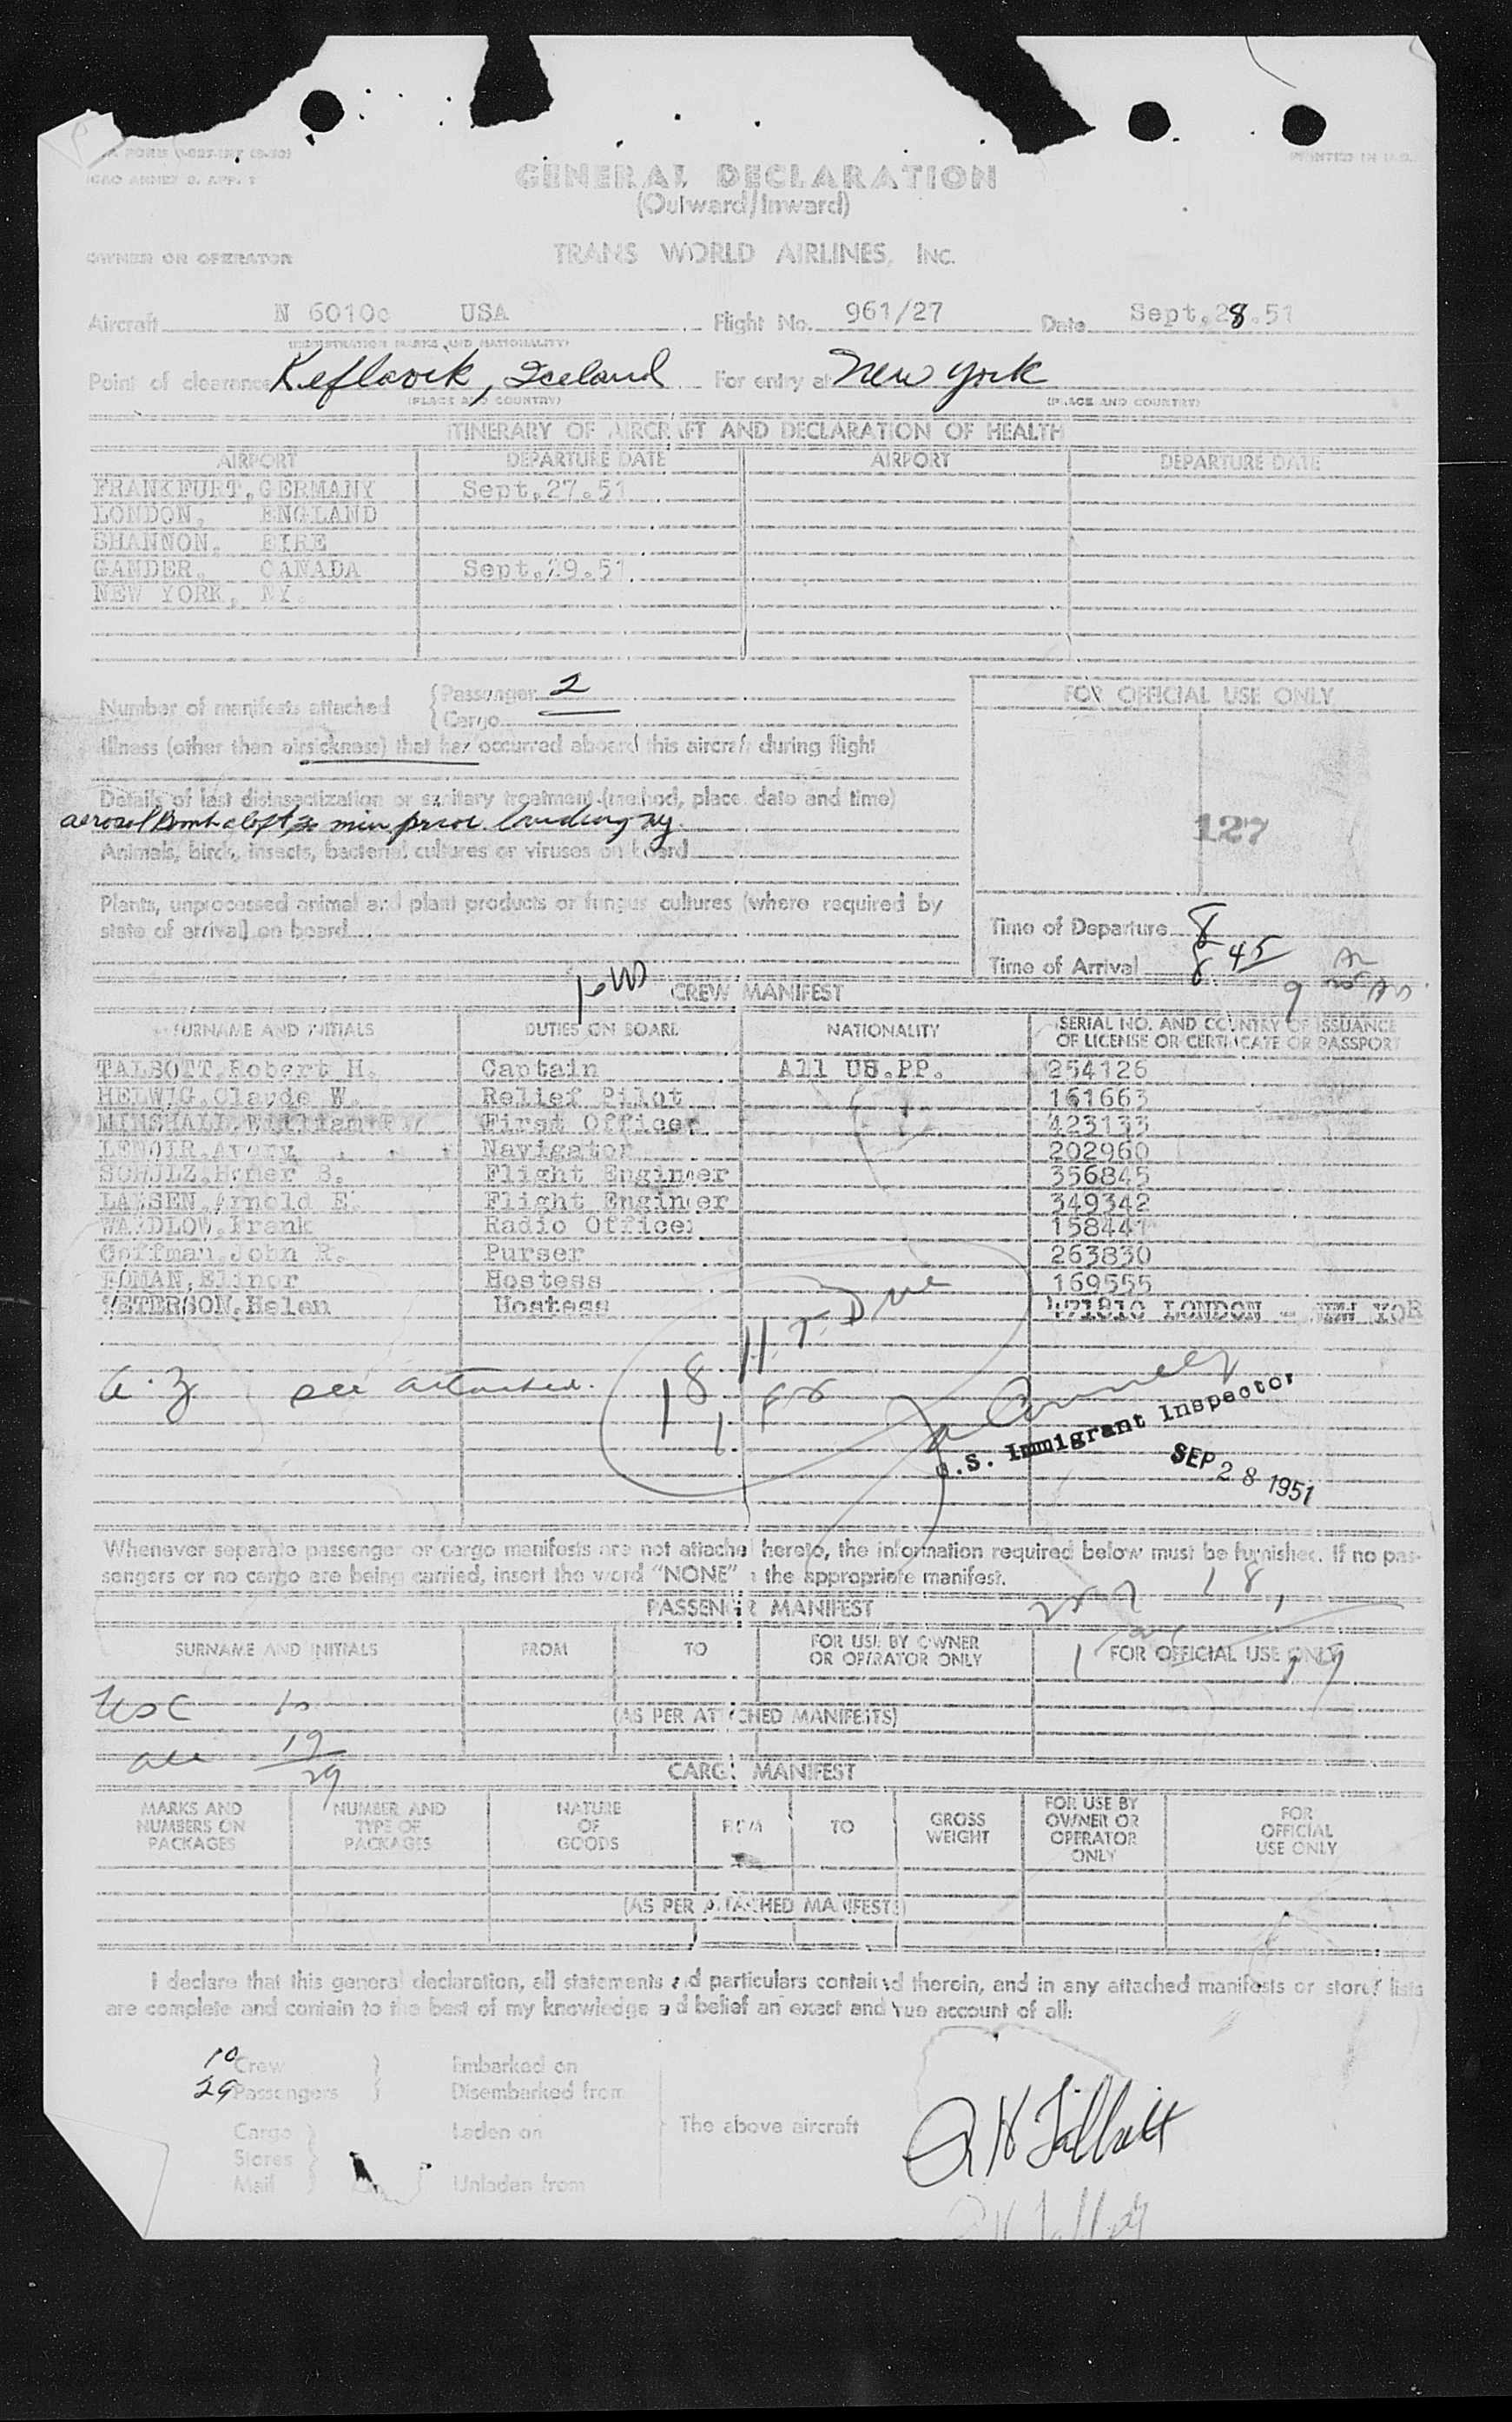 ICAO ANNEX 9. APP. 1
PRINTED IN U.S.
GENERAL DECLARATION
(Outward/Inward)
OWNER OR OPERATOR TRANS WORLD AIRLINES, INC.
Aircraft N 6010c USA Flight No. 961/27 Date Sept.28.51
(REGISTRATION MARKS AND NATIONALITY)
Point of clearance Keflavik, Iceland For entry at New York
(PLACE AND COUNTRY) (PLACE AND COUNTRY)
ITINERARY OF AIRCRAFT AND DECLARATION OF HEALTH
AIRPORT DEPARTURE DATE AIRPORT DEPARTURE DATE
FRANKFURT, GERMANY Sept.27.51
LONDON, ENGLAND
SHANNON, EIRE
GANDER, CANADA Sept.29.51
NEW YORK, NY.
Number of manifests attached { Passenger 2
{ Cargo
FOR OFFICIAL USE ONLY
Illness (other than airsickness) that has occurred aboard this aircraft during flight
Details of last disinsectization or sanitary treatment (method, place, date and time)
aerosol Bomb aloft 30 min prior landing ny.
127
Animals, birds, insects, bacterial cultures or viruses on board
Plants, unprocessed animal and plant products or fungus cultures (where required by
state of arrival) on board
Time of Departure 8
Time of Arrival 8 45
CREW MANIFEST
SURNAME AND INITIALS DUTIES ON BOARD NATIONALITY SERIAL NO. AND COUNTRY OF ISSUANCE OF LICENSE OR CERTIFICATE OR PASSPORT
TALBOTT, Robert H. Captain All US.PP. 254126
HELWIG, Claude W. Relief Pilot 161663
MINSHALL, William First Officer 423133
LENOIR, Avery Navigator 202960
SCHULZ, Homer B. Flight Enginer 356845
LARSEN, Arnold E. Flight Enginer 349342
WARDLOW, Frank Radio Officer 158441
Coffman, John R. Purser 263830
ROMAN, Elinor Hostess 169555
PETERSON, Helen Hostess 471810 LONDON - NEW YOR
see attached.
U.S. Immigrant Inspector
SEP 28 1951
Whenever separate passenger or cargo manifests are not attached hereto, the information required below must be furnished. If no pas-
sengers or no cargo are being carried, insert the word "NONE" in the appropriate manifest.
PASSENGER MANIFEST
SURNAME AND INITIALS FROM TO FOR USE BY OWNER OR OPERATOR ONLY FOR OFFICIAL USE ONLY
USC 10
(AS PER ATTACHED MANIFESTS)
19
29
CARGO MANIFEST
MARKS AND NUMBERS ON PACKAGES NUMBER AND TYPE OF PACKAGES NATURE OF GOODS FROM TO GROSS WEIGHT FOR USE BY OWNER OR OPERATOR ONLY FOR OFFICIAL USE ONLY
(AS PER ATTACHED MANIFESTS)
I declare that this general declaration, all statements and particulars contained therein, and in any attached manifests or stores lists
are complete and contain to the best of my knowledge and belief an exact and true account of all:
10 Crew } Embarked on
29 Passengers } Disembarked from
Cargo } Laden on The above aircraft
Stores }
Mail } Unladen from
R H Talbott